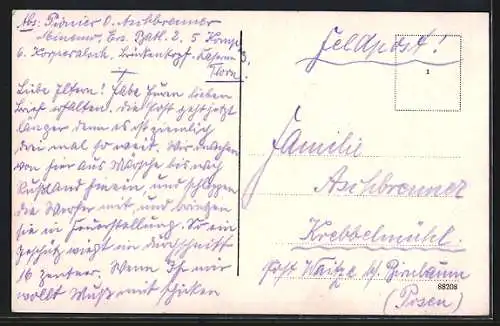 Abs: Pionier O. Aschbrenner
Minenw. Ers. Batl. 2. 5 Komp.
6. Korporalsch. Brückenkopf-Kaserne 3,
Thorn.
Liebe Eltern! Habe Euren lieben
Brief erhalten. Die Post geht jetzt
länger denn es ist ziemlich
drei mal so weit. Wir machen
von hier aus Märsche bis nach
Rußland hinein, und schleppen
die Werfer mit, und bringen
sie in Feuerstellung. So ein
Geschütz wiegt im durchschnitt
16 Zentner. Wenn Ihr mir
wollt Muß mit schicken
Feldpost!
1
Familie
Aschbrenner
Krebbelmühl.
Post Waitze bz. Birnbaum
(Posen)
88208